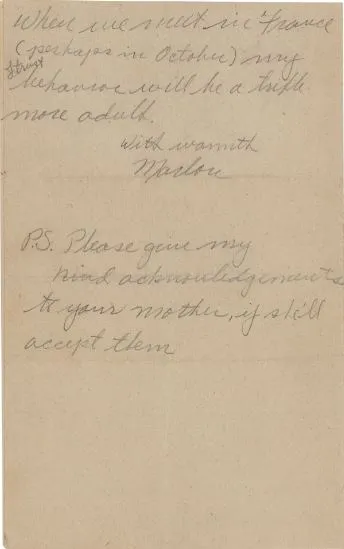 When we meet in France
(perhaps in October) my
I trust
behavior will be a trifle
more adult.
With warmth
Marlon
P.S. Please give my
kind acknowledgements
to your mother, if still
accept them